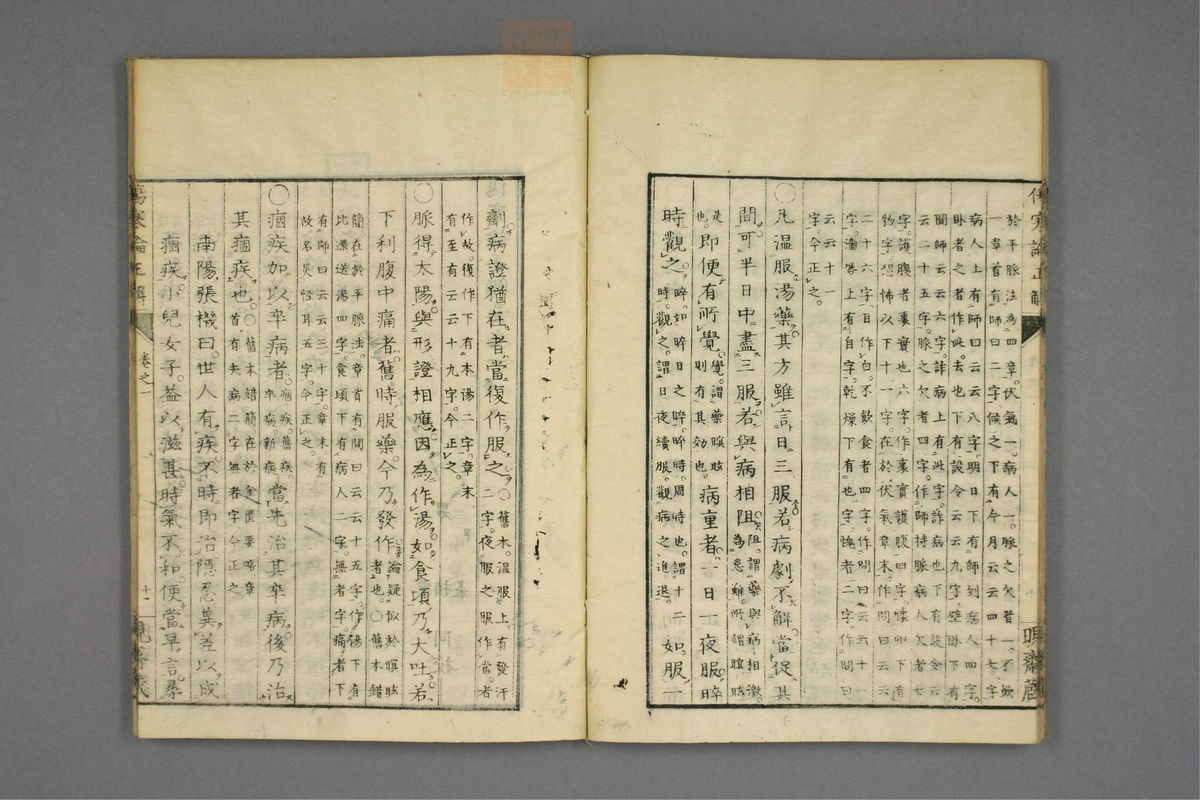 於平脈法為四章伏氣一。病人一。脈之欠者一。不飲
一章首有師曰二字候之下有今月云云四十七字
病人上有師曰云云八字。明日下有師到病人四字。
臥者之者作此。去也下有設令云云九字。壁臥下有
聞師云云六字。詐病上有此字。詐病也下有設令云
云二十五字。脈之欠者四字。作師持脈病人欠者七
字。護腹者裏實也六字。作裏實護腹四字。
物字。恐怖以下十一字。在於伏氣章末。作問曰云云
二十六字。目作白。不飲食者四字。作問曰云云十一
字。澹唇上有自字。乾燥下有也字。愧者二字作問曰
云云十一
字。今正之。
○凡溫服湯藥。其方雖言日三服。若病劇不解。當促其
間。可半日中盡三服。若與病相阻。阻。謂藥與病相激。為患難。所謂瞑眩
是也。即便有所覺。覺。謂藥瞑眩則有其効也。病重者。一日一夜服。晬
時觀之。晬。如晬日之晬。晬時。周時也。謂十二時。觀之。謂日夜續服。觀病之進退。如服一
劑。病證猶在者。當復作服之。○舊本。溫服上。有發汗二字。夜服之服作當。者
作故。復作下有本湯二字。章末
有至有云云十九字。今正之。
○脈得太陽。與形證相應。因為作湯。如食頃。乃大吐。若
下利腹中痛者。舊時服藥。今乃發作。論疑似於瞑眩者也。○舊本錯
簡。在於平脈法。章首有問曰云云十五字。作湯下有
比還送湯四字。食頃下有病人二字。無者字。痛者下
有師曰云云三十字。章末有
故名災怪耳五字。今正之。
○痼疾加以卒病者。痼疾。舊疾。卒病。新病。當先治其卒病。後乃治
其痼疾也。○舊本錯簡在於金匱要略章首有夫病二字無者字今正之
南陽張機曰。世人有疾。不時即治。隱忍冀差。以成
痼疾。小兒女子。益以滋甚。時氣不和。便當早言。尋
傷寒論正解
卷之一
十一
傷寒論正解